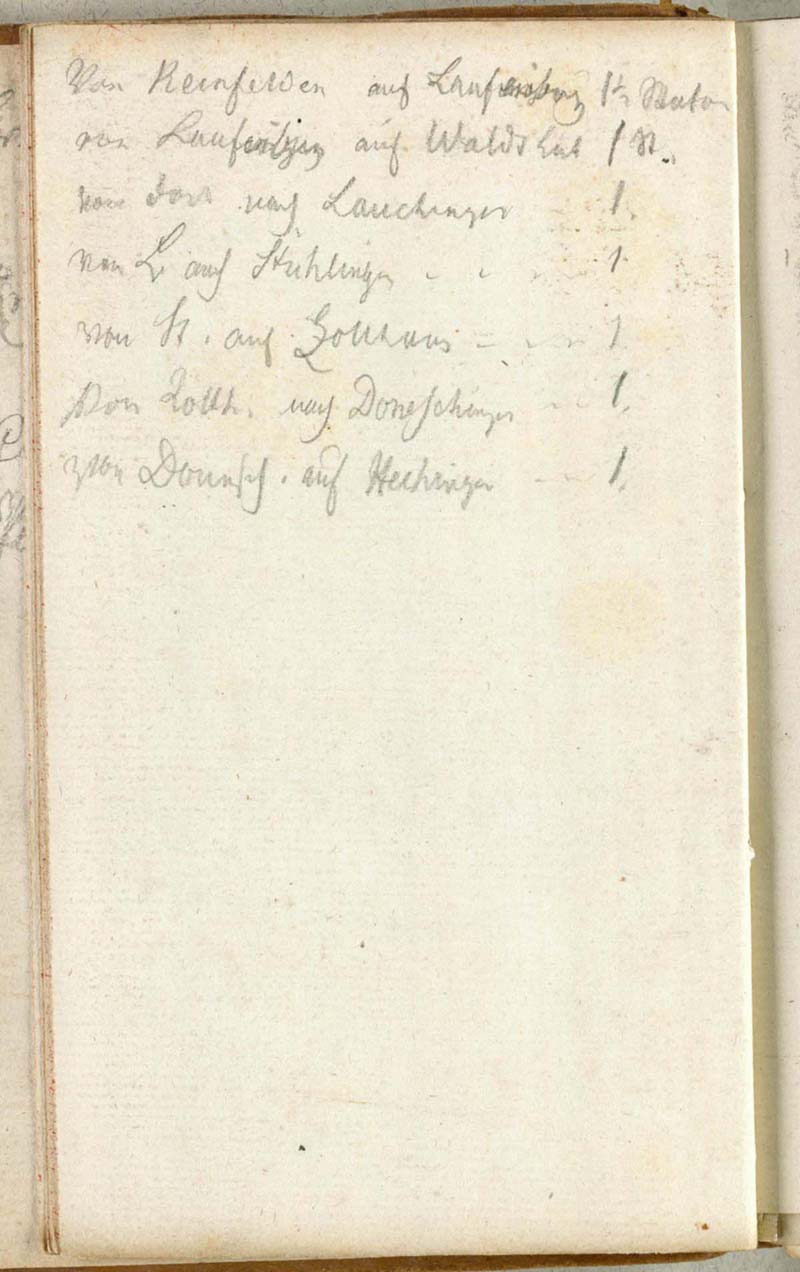 Von Reinfelden auf Laufenburg 1½ Station
von Laufenburg auf Waldshut 1 St.
von dort nach Lauchingen - 1.
von L. auf Stühlingen - - - 1
von St. auf Zollhaus - - - 1
Von Zollh. nach Doneschingen - - 1.
von Donesch. auf Hechingen - - 1.